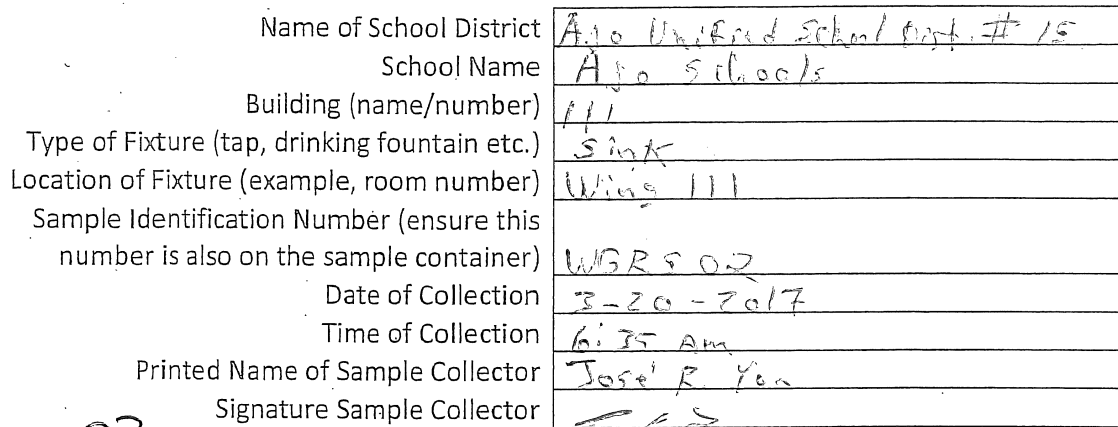 Name of School District Ajo Unified School Dist. # 15
School Name Ajo Schools
Building (name/number) 111
Type of Fixture (tap, drinking fountain etc.) Sink
Location of Fixture (example, room number) Wing 111
Sample Identification Number (ensure this
number is also on the sample container) WGRS02
Date of Collection 3-20-2017
Time of Collection 6:35 Am
Printed Name of Sample Collector José R.
Signature Sample Collector